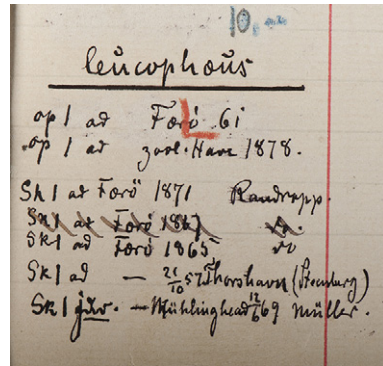 10,
leucophæus
op 1 ad Færö 61
op 1 ad zool. Have 1878.
L
Sk 1 ad Færö 1871 Randropp.
Sk 1 ad Færö 1867 do.
Sk 1 ad Færö 1865 do
Sk 1 ad — 21/10 57 Thorshavn (Stenburg)
Sk 1 juv. — 12/6 69 Müller.